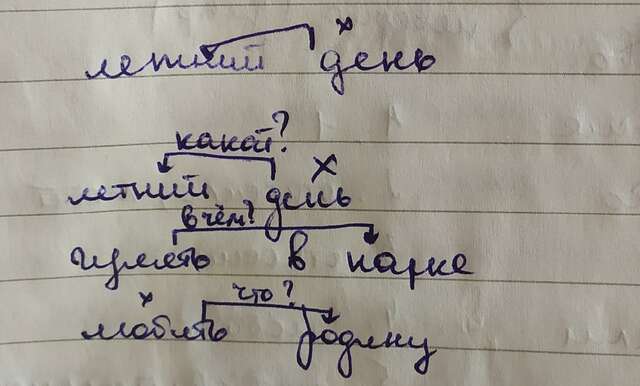 летний день
какой?
летний день
в чём?
гулять в парке
что?
любить родину